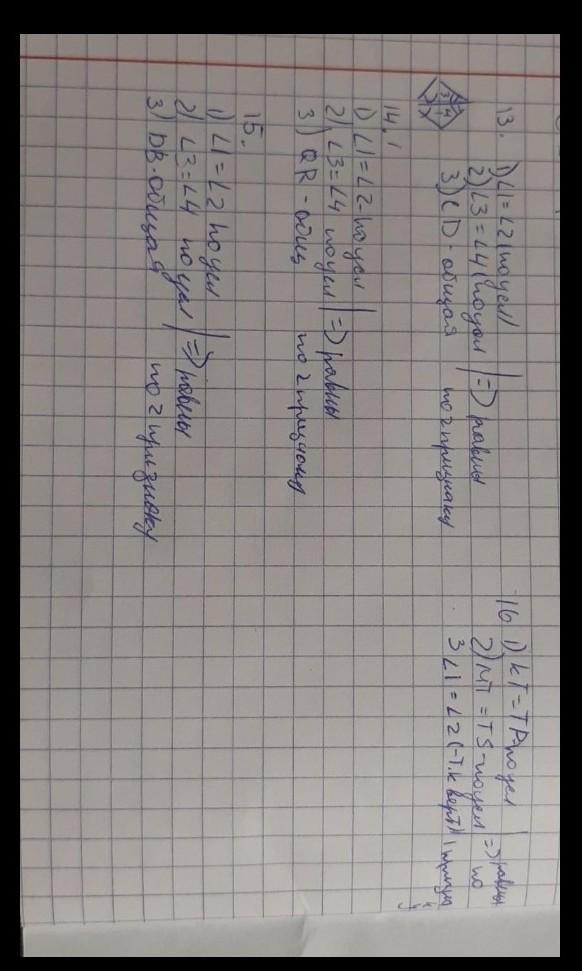 13. 1) ∠1 = ∠2 (по усл)
2) ∠3 = ∠4 (по усл | => равны
3) CD - общая по 2 признаку
14.
1) ∠1 = ∠2 - по усл
2) ∠3 = ∠4 по усл | => равны
3) QR - общ по 2 признаку
15.
1) ∠1 = ∠2 по усл
2) ∠3 = ∠4 по усл | => равны
3) DB - общая по 2 признаку
16 1) KT = TP по усл
2) MT = TS - по усл => равны по
3 ∠1 = ∠2 (-т.к верт) 1